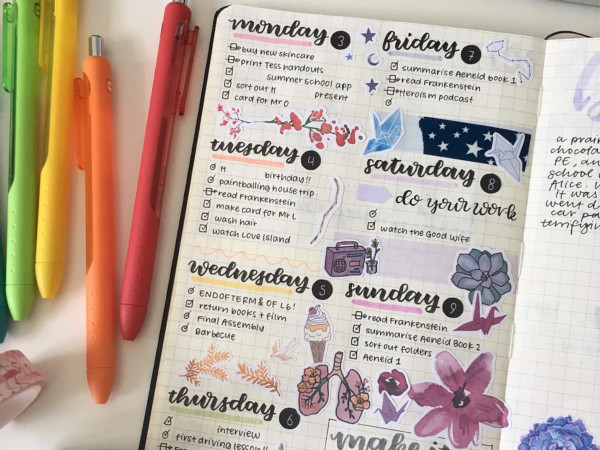 monday 3
buy new skincare
print Tess handouts
summer school app
sort out H present
card for Mr O
tuesday 4
H birthday!!
paintballing house trip
read Frankenstein
make card for Mr L
wash hair
watch Love Island
wednesday 5
END OF TERM & OF L6!
return books + film
Final Assembly
Barbecue
thursday 6
interview
first driving lesson!!
friday 7
summarise Aeneid book 1
read Frankenstein
Heroism podcast
saturday 8
do your work
watch the Good Wife
sunday 9
read Frankenstein
summarise Aeneid Book 2
sort out folders
Aeneid 1
make it
a prairi
chocola
PE, an
school
Alice.
it was
went d
car pa
terrifyin